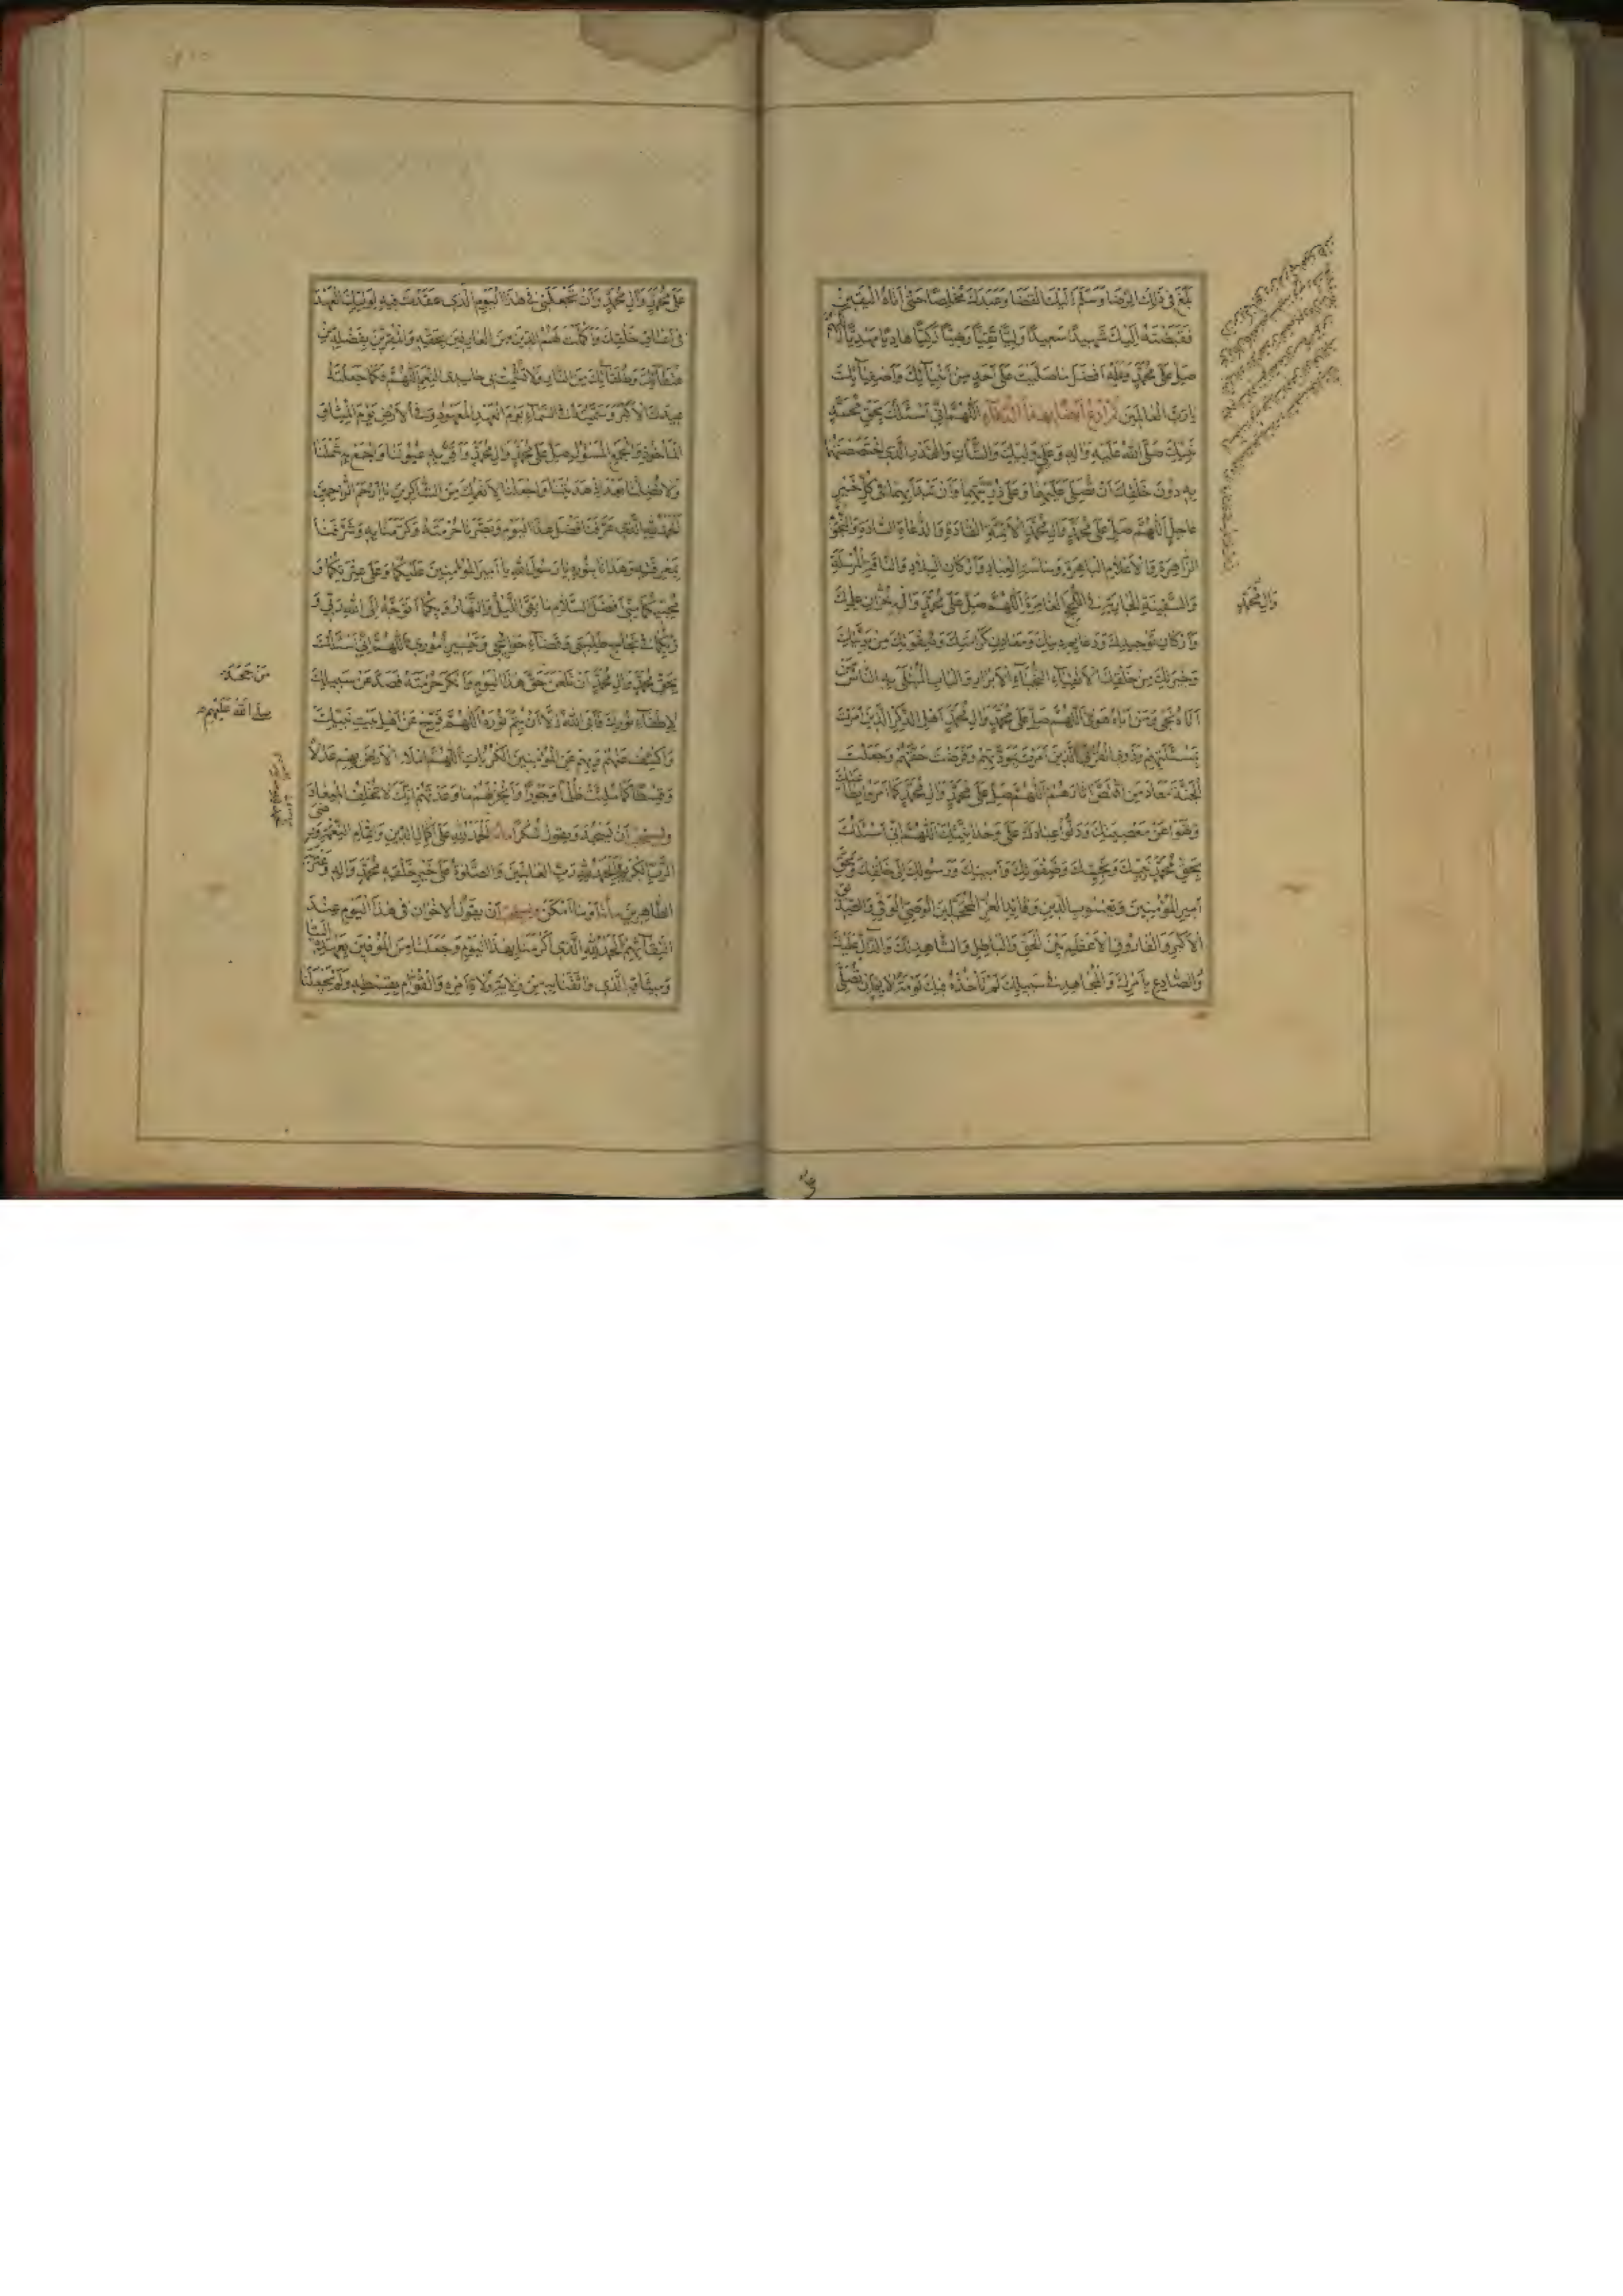 بَلَغَ فِي ذٰلِكَ الرِّضَا وَسَلَّمَ إِلَيْكَ الْقَضَا وَعَبَدَكَ مُخْلِصًا حَتّٰى أَتَاهُ الْيَقِينُ
فَقَبَضْتَهُ إِلَيْكَ شَهِيدًا سَعِيدًا وَلِيًّا تَقِيًّا رَضِيًّا زَكِيًّا هَادِيًا مَهْدِيًّا اللّٰهُمَّ
صَلِّ عَلٰى مُحَمَّدٍ وَعَلَيْهِ أَفْضَلَ مَا صَلَّيْتَ عَلٰى أَحَدٍ مِنْ أَنْبِيَائِكَ وَأَصْفِيَائِكَ
يَا رَبَّ الْعَالَمِينَ ثُمَّ ادْعُ أَيْضًا بِهٰذَا الدُّعَاءِ اَللّٰهُمَّ إِنِّي أَسْئَلُكَ بِحَقِّ مُحَمَّدٍ
نَبِيِّكَ صَلَّى اللّٰهُ عَلَيْهِ وَآلِهِ وَعَلِيٍّ وَلِيِّكَ وَالشَّأْنِ وَالْقَدْرِ الَّذِي اخْتَصَصْتَهُمَا
بِهِ دُونَ خَلْقِكَ أَنْ تُصَلِّيَ عَلَيْهِمَا وَعَلٰى ذُرِّيَّتِهِمَا وَأَنْ تَبْدَأَ بِهِمَا فِي كُلِّ خَيْرٍ
عَاجِلٍ اَللّٰهُمَّ صَلِّ عَلٰى مُحَمَّدٍ وَآلِ مُحَمَّدٍ الْأَئِمَّةِ الْقَادَةِ وَالدُّعَاةِ السَّادَةِ وَالنُّجُومِ
الزَّاهِرَةِ وَالْأَعْلَامِ الْبَاهِرَةِ وَسَاسَةِ الْعِبَادِ وَأَرْكَانِ الْبِلَادِ وَالنَّاقَةِ الْمُرْسَلَةِ
وَالسَّفِينَةِ الْجَارِيَةِ فِي اللُّجَجِ الْغَامِرَةِ اَللّٰهُمَّ صَلِّ عَلٰى مُحَمَّدٍ وَآلِ مُحَمَّدٍ خُزَّانِ عِلْمِكَ
وَأَرْكَانِ تَوْحِيدِكَ وَدَعَائِمِ دِينِكَ وَمَعَادِنِ كَرَامَتِكَ وَصَفْوَتِكَ مِنْ بَرِيَّتِكَ
وَخِيَرَتِكَ مِنْ خَلْقِكَ الْأَتْقِيَاءِ النُّجَبَاءِ الْأَبْرَارِ وَالْبَابِ الْمُبْتَلٰى بِهِ النَّاسُ مَنْ
أَتَاهُ نَجٰى وَمَنْ أَبَاهُ هَوٰى اَللّٰهُمَّ صَلِّ عَلٰى مُحَمَّدٍ وَآلِ مُحَمَّدٍ أَهْلِ الذِّكْرِ الَّذِينَ أَمَرْتَ
بِمَسْئَلَتِهِمْ وَذَوِي الْقُرْبٰى الَّذِينَ أَمَرْتَ بِمَوَدَّتِهِمْ وَفَرَضْتَ حَقَّهُمْ وَجَعَلْتَ
الْجَنَّةَ مَعَادَ مَنِ اقْتَصَّ آثَارَهُمْ اَللّٰهُمَّ صَلِّ عَلٰى مُحَمَّدٍ وَآلِ مُحَمَّدٍ كَمَا أَمَرُوا بِطَاعَتِكَ
وَنَهَوْا عَنْ مَعْصِيَتِكَ وَدَلُّوا عِبَادَكَ عَلٰى وَحْدَانِيَّتِكَ اَللّٰهُمَّ إِنِّي أَسْئَلُكَ
بِحَقِّ مُحَمَّدٍ نَبِيِّكَ وَنَجِيِّكَ وَصَفْوَتِكَ وَأَمِينِكَ وَرَسُولِكَ إِلٰى خَلْقِكَ وَبِحَقِّ
أَمِيرِ الْمُؤْمِنِينَ وَيَعْسُوبِ الدِّينِ وَقَائِدِ الْغُرِّ الْمُحَجَّلِينَ الْوَصِيِّ الْوَفِيِّ وَالصِّدِّيقِ
الْأَكْبَرِ وَالْفَارُوقِ الْأَعْظَمِ بَيْنَ الْحَقِّ وَالْبَاطِلِ وَالشَّاهِدِ لَكَ وَالدَّالِّ عَلَيْكَ
وَالصَّادِعِ بِأَمْرِكَ وَالْمُجَاهِدِ فِي سَبِيلِكَ لَمْ تَأْخُذْهُ فِيكَ لَوْمَةُ لَائِمٍ أَنْ تُصَلِّيَ
وَآلِ مُحَمَّدٍ
عَلٰى
عَلٰى مُحَمَّدٍ وَآلِ مُحَمَّدٍ وَأَنْ تَجْعَلَنِي فِي هٰذَا الْيَوْمِ الَّذِي عَقَدْتَ فِيهِ لِوَلِيِّكَ الْعَهْدَ
فِي أَعْنَاقِ خَلْقِكَ وَأَكْمَلْتَ لَهُمُ الدِّينَ مِنَ الْعَارِفِينَ بِحَقِّهِ وَالْمُقِرِّينَ بِفَضْلِهِ مِنْ
عُتَقَائِكَ وَطُلَقَائِكَ مِنَ النَّارِ وَلَا تُشْمِتْ بِي حَاسِدِي النِّعَمِ اَللّٰهُمَّ فَكَمَا جَعَلْتَهُ
عِيدَكَ الْأَكْبَرَ وَسَمَّيْتَهُ فِي السَّمَاءِ يَوْمَ الْعَهْدِ الْمَعْهُودِ وَفِي الْأَرْضِ يَوْمَ الْمِيثَاقِ
الْمَأْخُوذِ وَالْجَمْعِ الْمَسْؤُلِ صَلِّ عَلٰى مُحَمَّدٍ وَآلِ مُحَمَّدٍ وَأَقْرِرْ بِهِ عُيُونَنَا وَاجْمَعْ بِهِ شَمْلَنَا
وَلَا تُضِلَّنَا بَعْدَ إِذْ هَدَيْتَنَا وَاجْعَلْنَا لِأَنْعُمِكَ مِنَ الشَّاكِرِينَ يَا أَرْحَمَ الرَّاحِمِينَ
اَلْحَمْدُ لِلّٰهِ الَّذِي عَرَّفَنَا فَضْلَ هٰذَا الْيَوْمِ وَبَصَّرَنَا حُرْمَتَهُ وَكَرَّمَنَا بِهِ وَشَرَّفَنَا
بِمَعْرِفَتِهِ وَهَدَانَا بِنُورِهِ يَا رَسُولَ اللّٰهِ يَا أَمِيرَ الْمُؤْمِنِينَ عَلَيْكُمَا وَعَلٰى عِتْرَتِكُمَا وَ
مُحِبِّيكُمَا مِنِّي أَفْضَلُ السَّلَامِ مَا بَقِيَ اللَّيْلُ وَالنَّهَارُ وَبِكُمَا أَتَوَجَّهُ إِلَى اللّٰهِ رَبِّي وَ
رَبِّكُمَا فِي نَجَاحِ طَلِبَتِي وَقَضَاءِ حَوَائِجِي وَتَيْسِيرِ أُمُورِي اَللّٰهُمَّ إِنِّي أَسْئَلُكَ
بِحَقِّ مُحَمَّدٍ وَآلِ مُحَمَّدٍ أَنْ تَلْعَنَ حَقَّ هٰذَا الْيَوْمِ وَأَنْكَرَ حُرْمَتَهُ فَصَدَّ عَنْ سَبِيلِكَ
لِإِطْفَاءِ نُورِكَ فَأَبَى اللّٰهُ إِلَّا أَنْ يُتِمَّ نُورَهُ اَللّٰهُمَّ فَرِّجْ عَنْ أَهْلِ بَيْتِ نَبِيِّكَ
وَاكْشِفْ عَنْهُمْ وَبِهِمْ عَنِ الْمُؤْمِنِينَ الْكُرُبَاتِ اَللّٰهُمَّ امْلَأِ الْأَرْضَ بِهِمْ عَدْلًا
وَقِسْطًا كَمَا مُلِئَتْ ظُلْمًا وَجَوْرًا وَأَنْجِزْ لَهُمْ مَا وَعَدْتَهُمْ إِنَّكَ لَا تُخْلِفُ الْمِيعَادَ
وَيُسْتَحَبُّ أَنْ يَسْجُدَ وَيَقُولَ شُكْرًا اَلْحَمْدُ لِلّٰهِ عَلٰى إِكْمَالِ الدِّينِ وَإِتْمَامِ النِّعْمَةِ وَرِضَى
الرَّبِّ الْكَرِيمِ وَالْحَمْدُ لِلّٰهِ رَبِّ الْعَالَمِينَ وَالصَّلٰوةُ عَلٰى خَيْرِ خَلْقِهِ مُحَمَّدٍ وَآلِهِ وَعِتْرَتِهِ
الطَّاهِرِينَ مِأَةً أَوْ مَا أَمْكَنَ وَيُسْتَحَبُّ أَنْ يَقُولَ الْإِخْوَانُ فِي هٰذَا الْيَوْمِ عِنْدَ
الْتِقَائِهِمْ اَلْحَمْدُ لِلّٰهِ الَّذِي أَكْرَمَنَا بِهٰذَا الْيَوْمِ وَجَعَلَنَا مِنَ الْمُوفِينَ بِعَهْدِهِ إِلَيْنَا
وَمِيثَاقِهِ الَّذِي وَاثَقَنَا بِهِ مِنْ وِلَايَةِ وُلَاةِ أَمْرِهِ وَالْقُوَّامِ بِقِسْطِهِ وَلَمْ يَجْعَلْنَا
مَنْ جَحَدَ
صلى الله عليهم